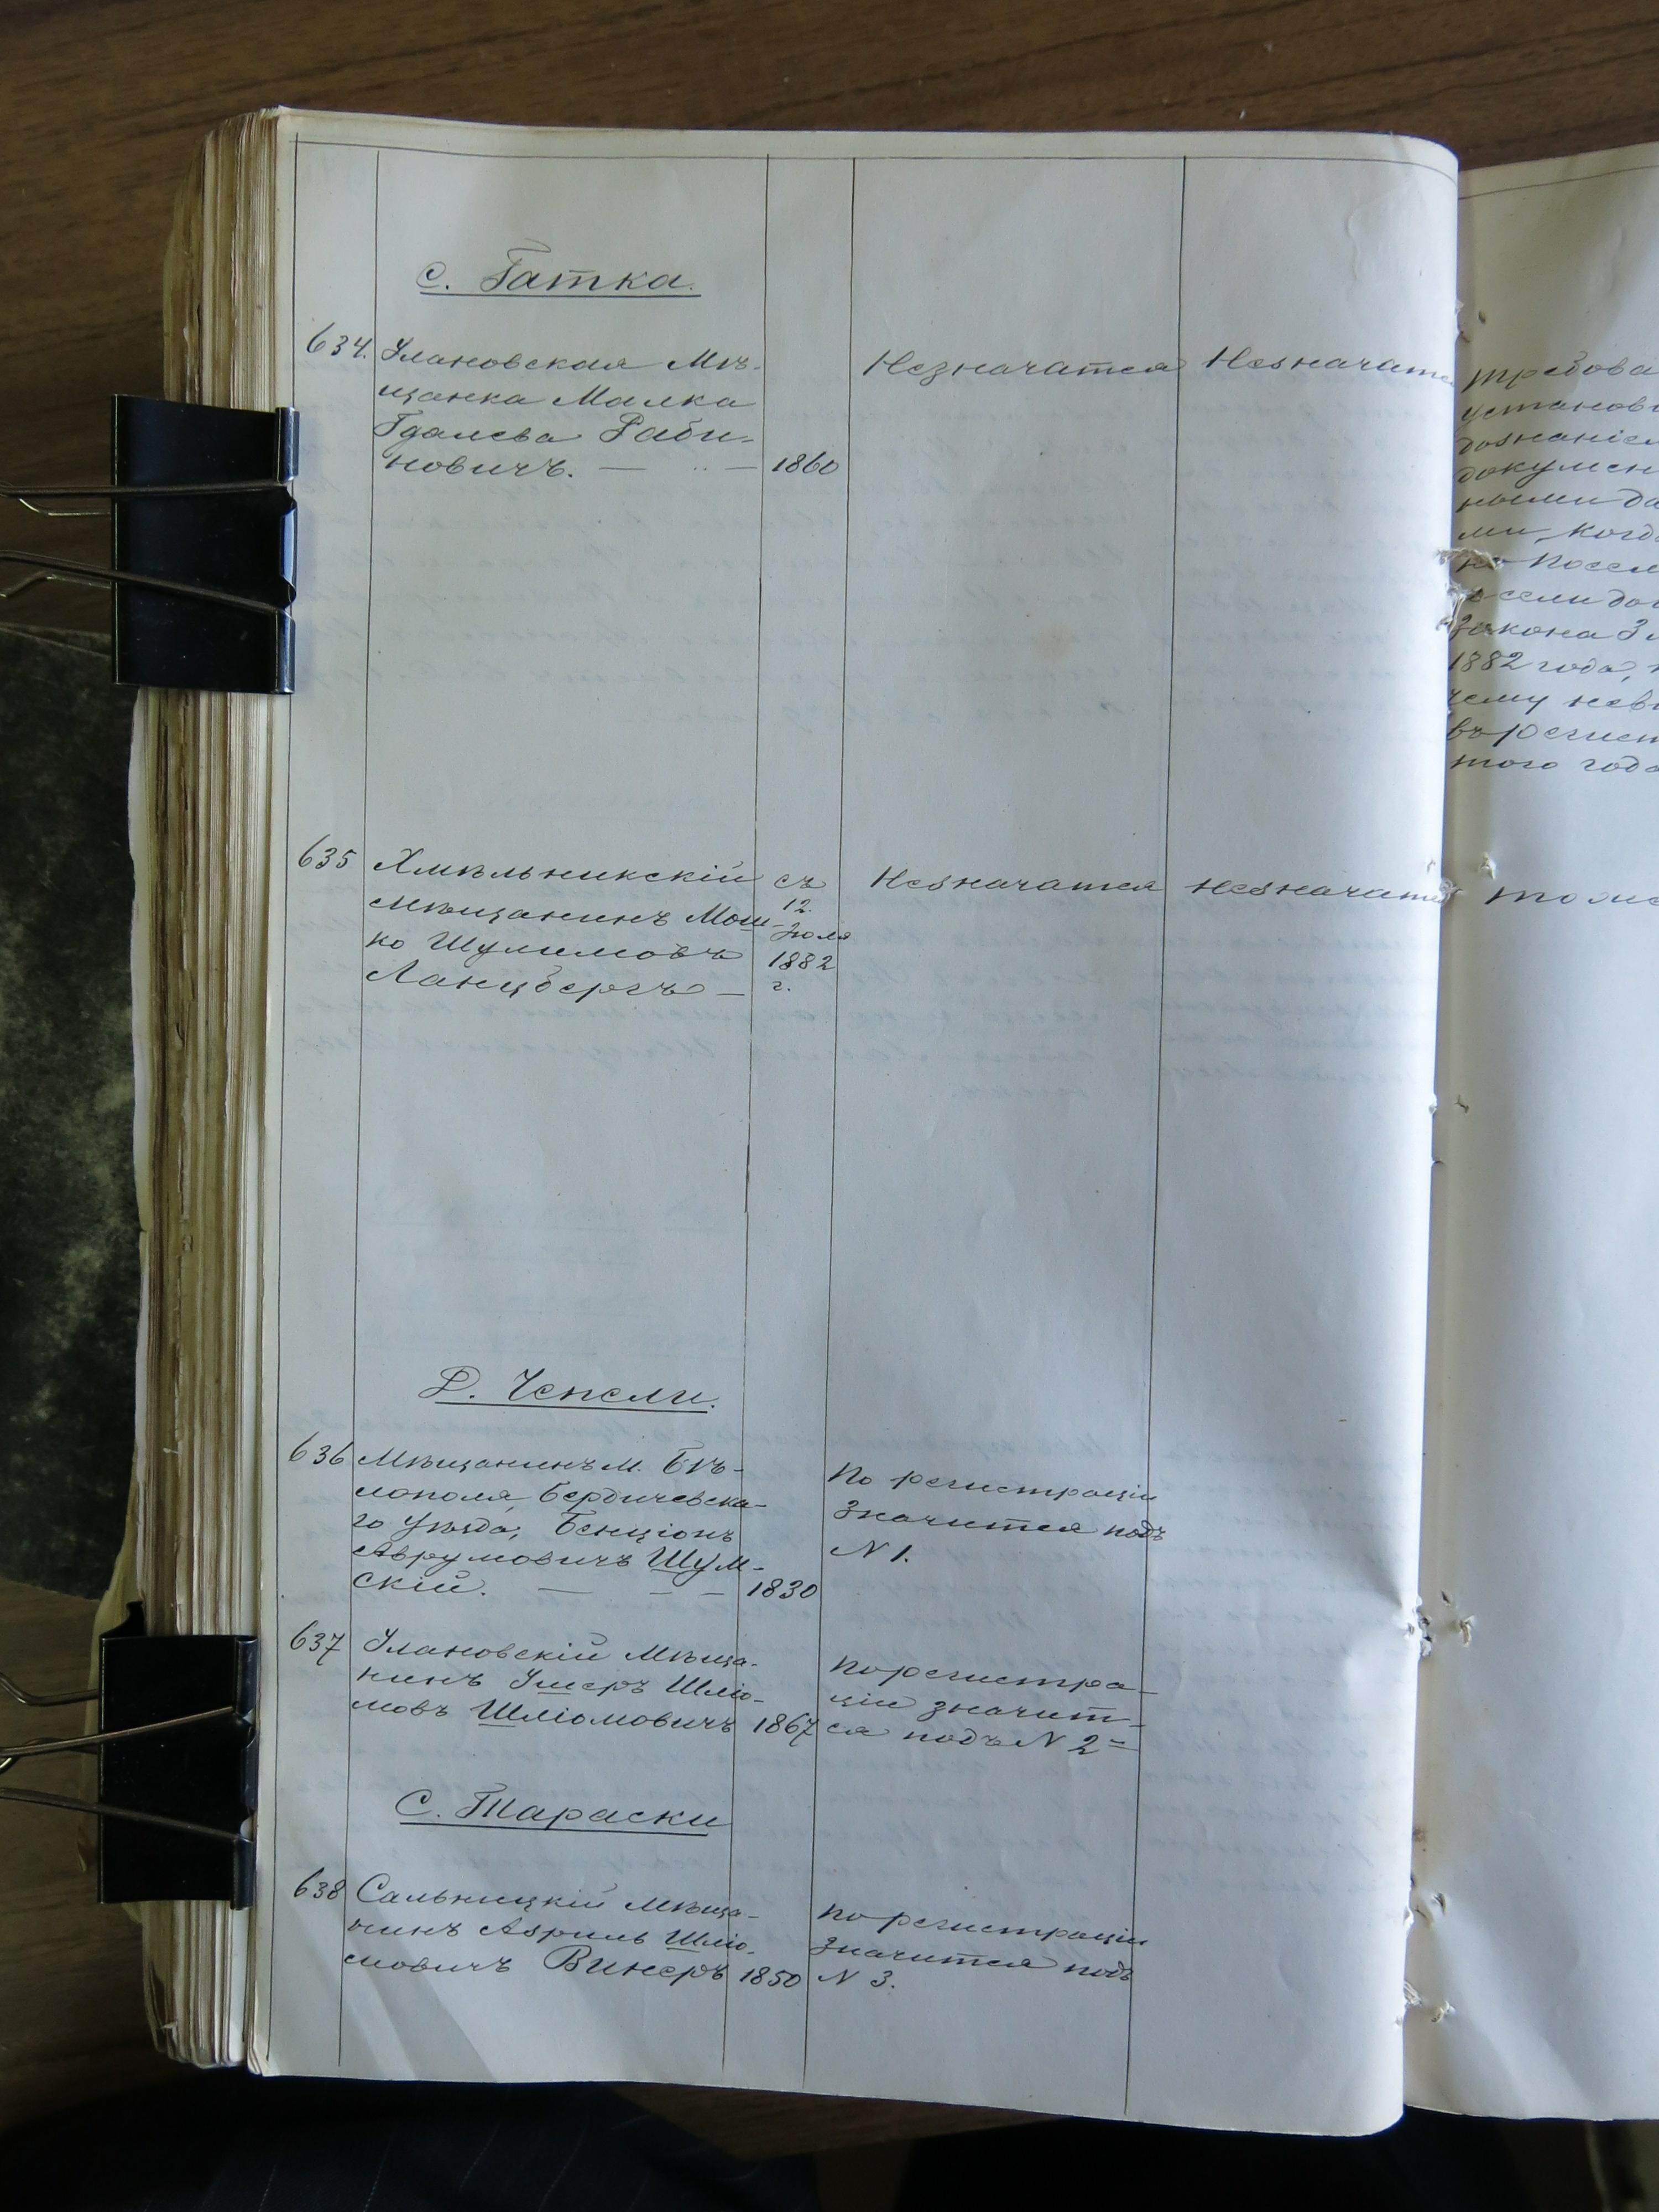 с. Гатка.
634. Улановская Мѣ-
щанка Малка
Гдалева Раби-
новичъ. — 1860
Незначатся
Незначатся
635 Хмѣльникскій
мѣщанинъ Мош-
ко Шулимовъ
Ланцбергъ —
съ
12
Іюля
1882
г.
Незначатся
Незначатся
Д. Чепели.
636 Мѣщанинъ м. Бѣ-
лополя, Бердичевска-
го уѣзда, Бенціонъ
Аврумовичъ Шум-
скій. — — — 1830
По регистраціи
значится подъ
N 1.
637 Улановскій Мѣща-
нинъ Ушеръ Шліо-
мовъ Шліомовичъ 1867
По регистра-
ціи значит-
ся подъ N 2
С. Тараски
638 Сальницкій Мѣща-
нинъ Азриль Шліо-
мовичъ Винеръ 1850
По регистраціи
значится подъ
N 3.
требова
установ
дознаніе
докумен
ными да
ми, когд
но посел
если до
закона 3
1882 года,
чему нев
въ регист
того года
тоже